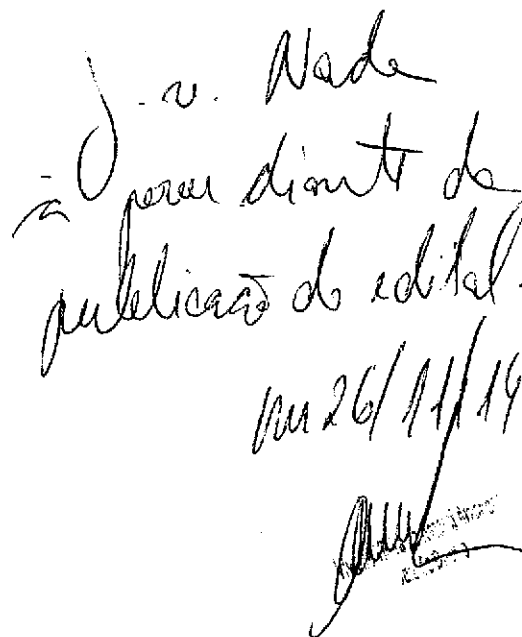 J. v. Nada
à prover diante da
publicação do edital.
26/11/14